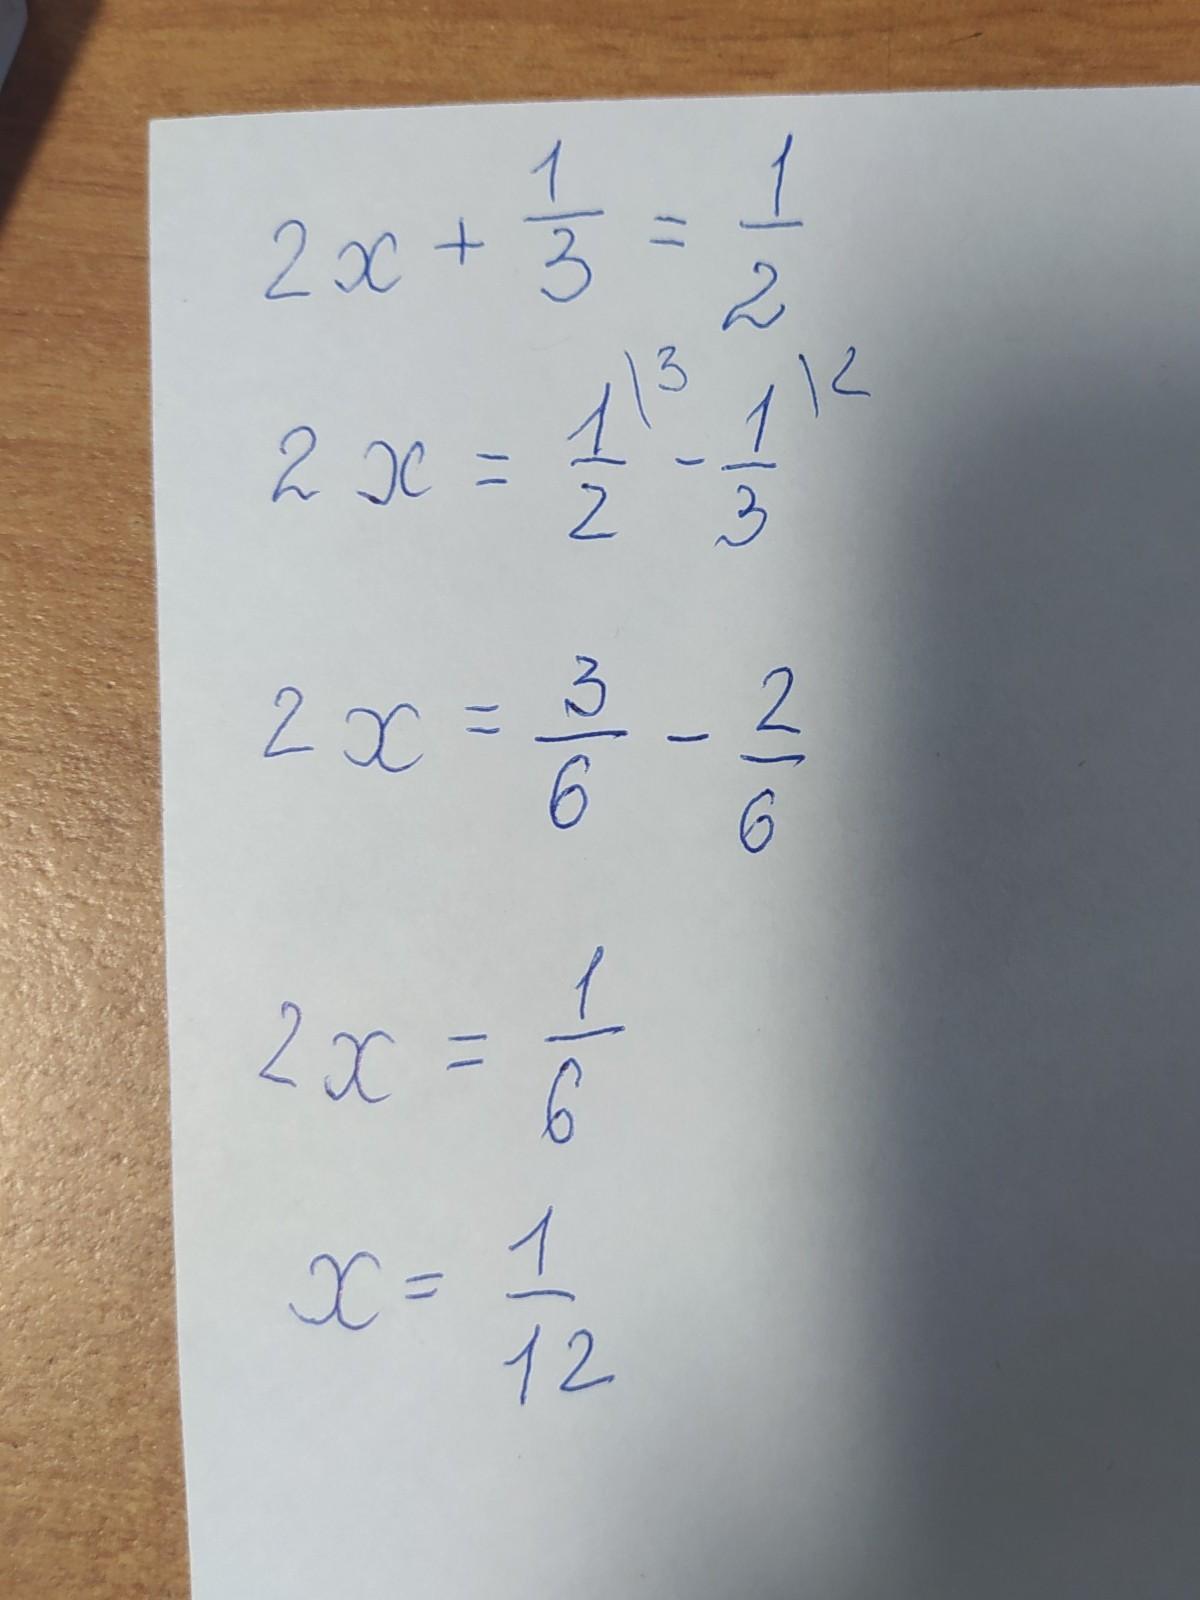 2x + 1/3 = 1/2
2x = 1/2 \3 - 1/3 \2
2x = 3/6 - 2/6
2x = 1/6
x = 1/12